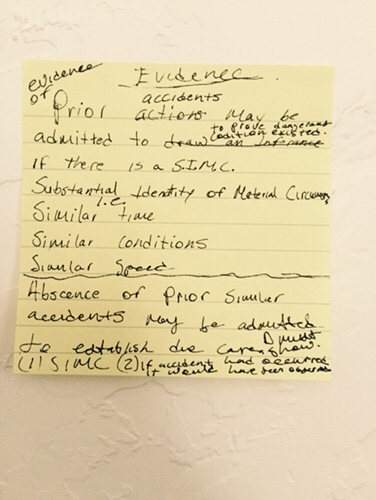 Evidence
evidence
of
Prior accidents
actions may be
to prove dangerous
condition existed.
admitted to draw an inference
if there is a S.I.M.C.
Substantial Identity of Material
i.e.
Similar time
Similar conditions
Similar Speed
Abscence of Prior Similar
accidents may be admitted
to establish due care D must show.
(1) SIMC (2) If accidents had occurred
it would have been observed